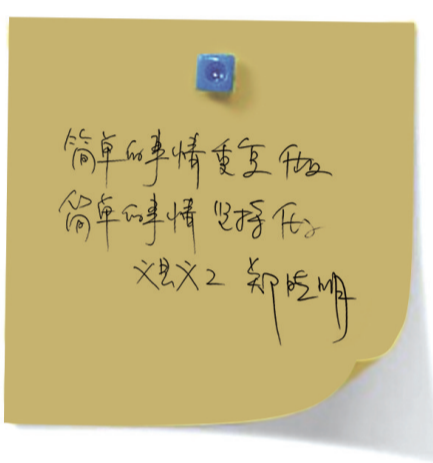 简单的事情重复做
简单的事情坚持做
郑晓明